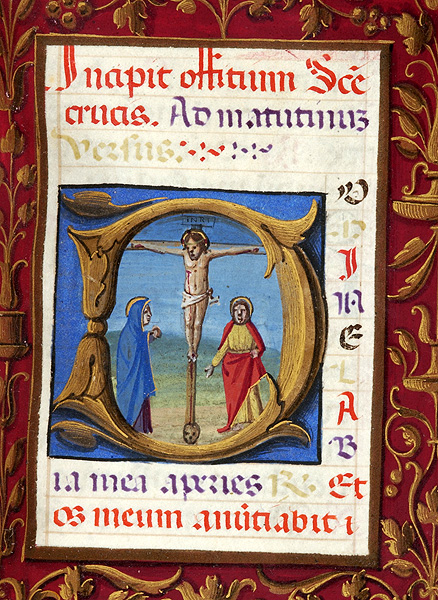 Incipit offitium Sc̄e
crucis. Ad matutinuz
Versus.
INRI
DOMINELAB
ia mea aperies R. Et
os meum anūtiabit